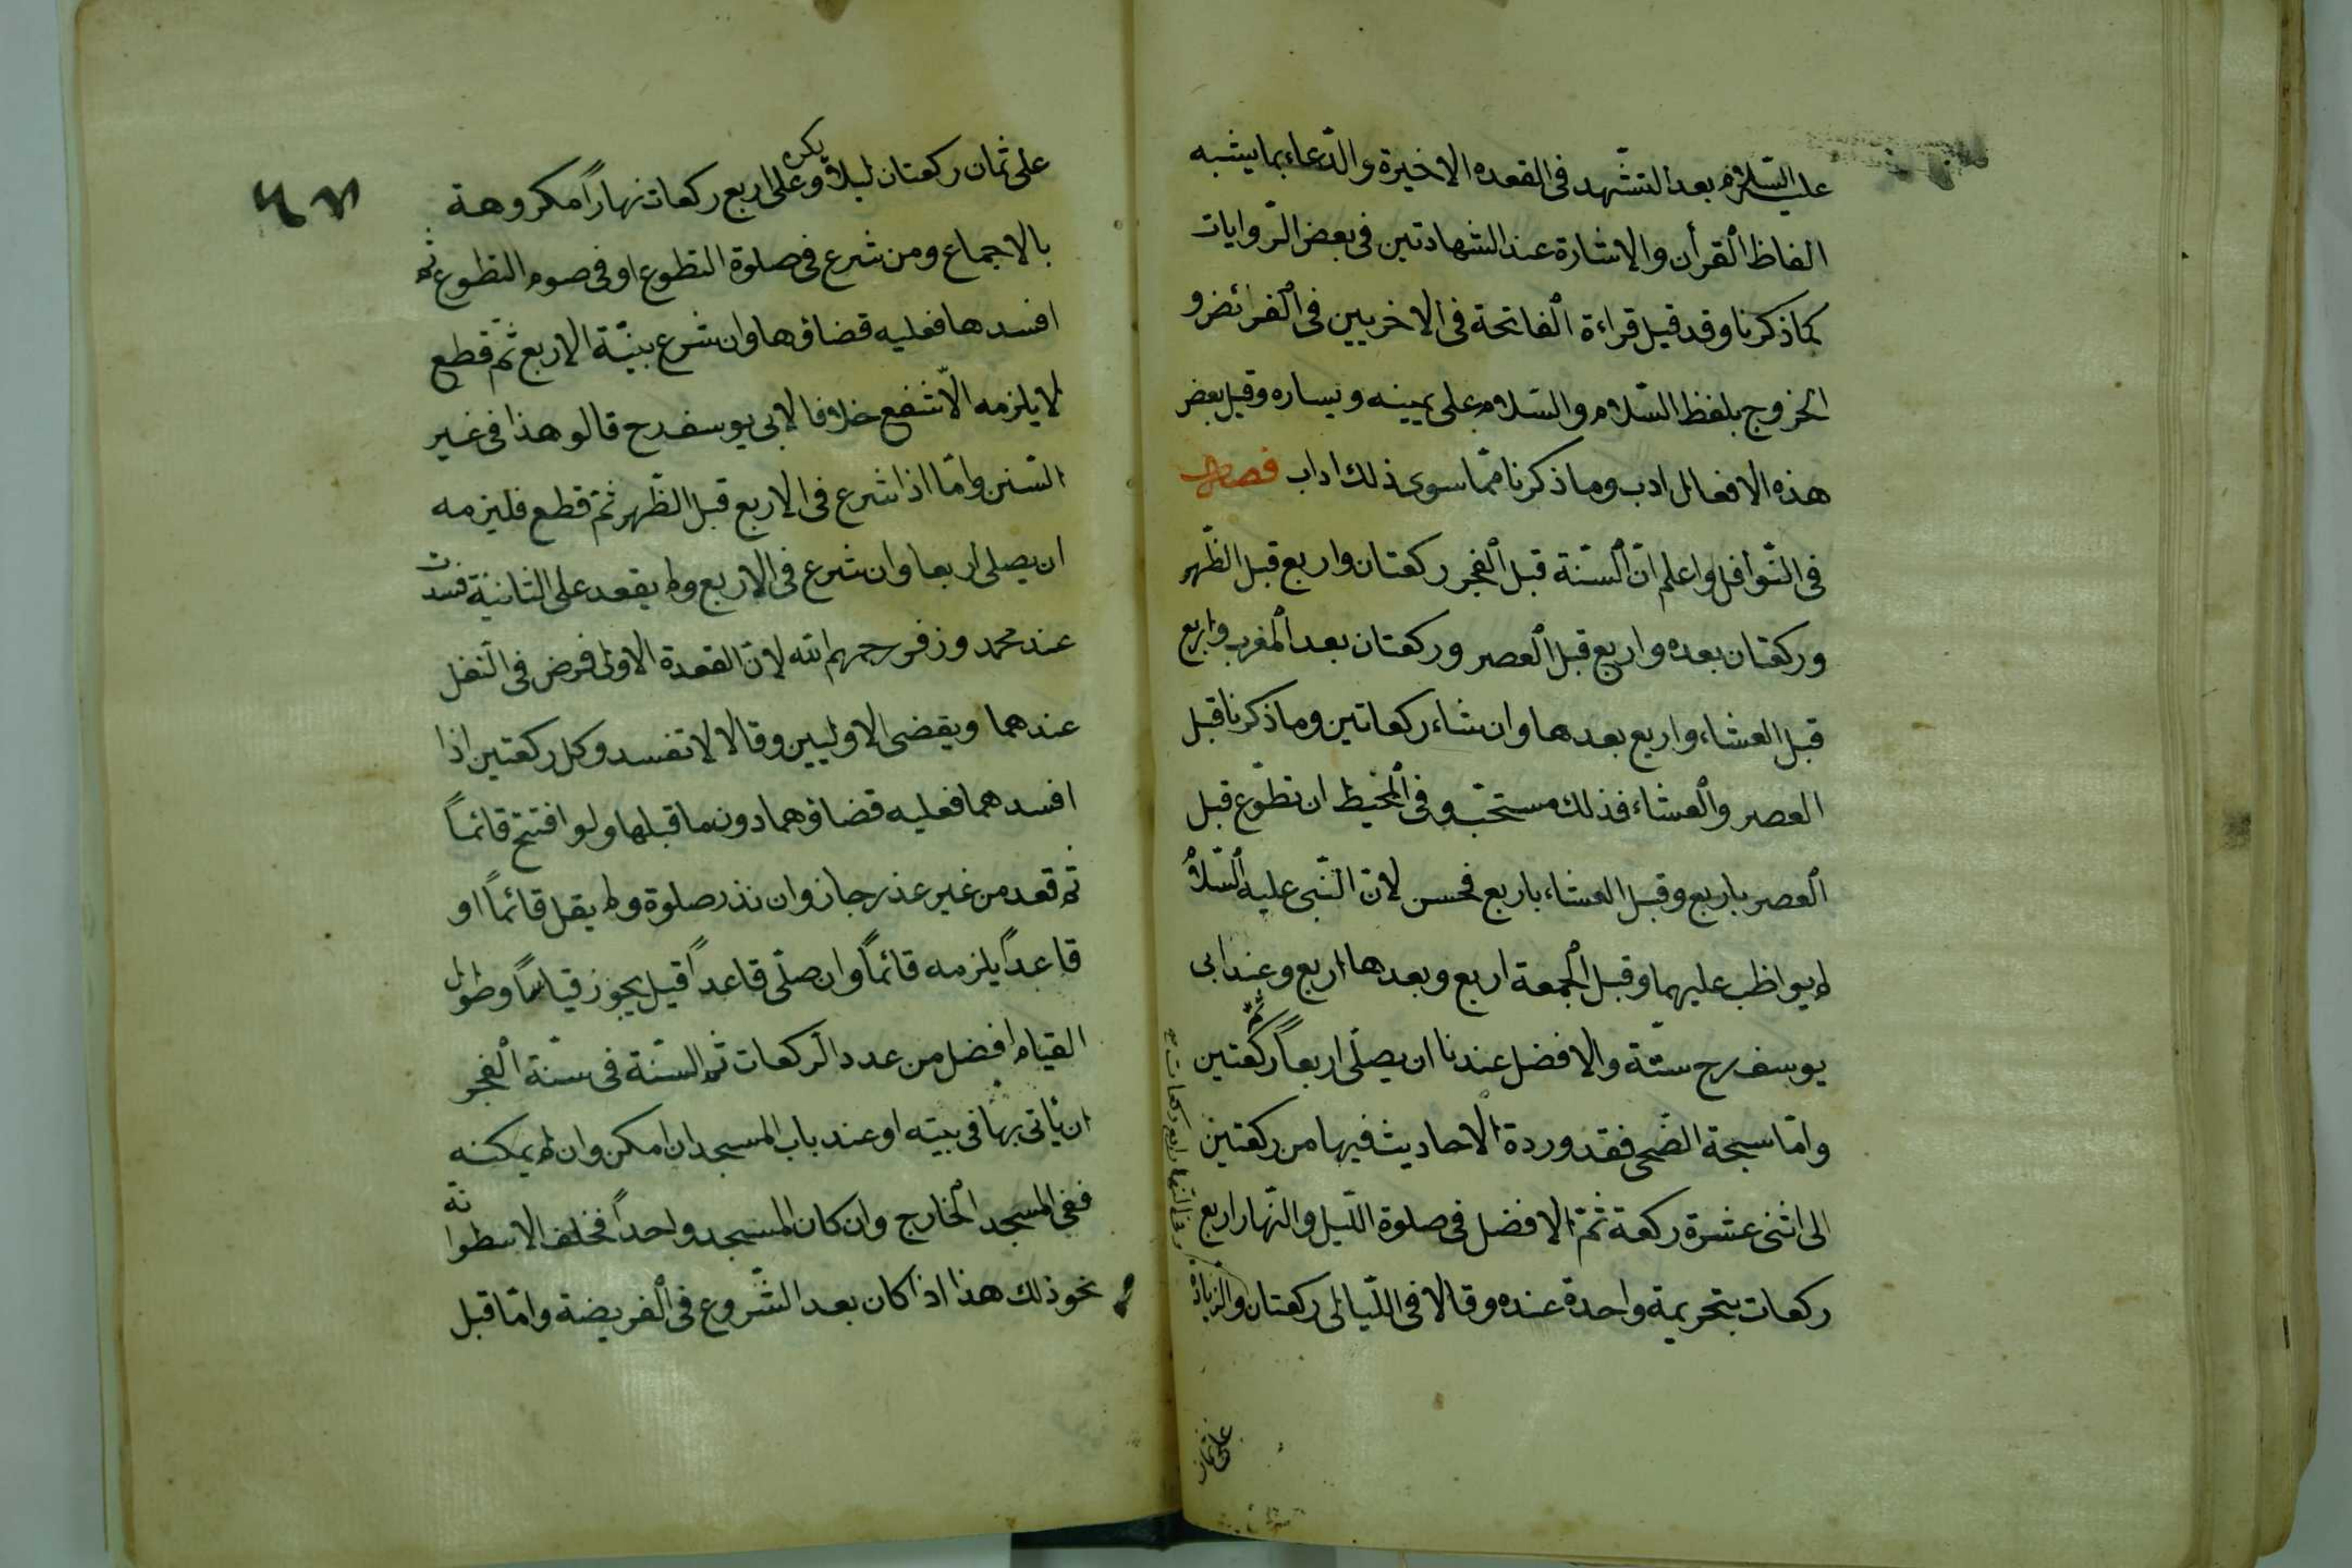 عليه السّلام بعد التشّهد فى القعده الاخيرة والدّعاء بما يشبه
الفاظ القرأن والاشارة عند الشهادتين فى بعض الرّوايات
كما ذكرنا وقد قيل قراءة الفاتحة فى الاخريين فى الفرائض و
الخروج بلفظ السّلام والسّلام على يمينه ويساره وقيل بعض
هذه الافعال ادب وما ذكرنا ممّا سوى ذلك اداب فصل
فى النّوافل واعلم انّ السّنة قبل الفجر ركعتان واربع قبل الظّهر
وركعتان بعده واربع قبل العصر وركعتان بعد المغرب واربع
قبل العشاء واربع بعدها وان شاء ركعاتين وما ذكرنا قبل
العصر والعشاء فذلك مستحبّ وفى المحيط ان تطوّع قبل
العصر باربع وقبل العشاء باربع فحسن لانّ النّبى عليه السّلام
لم يواظب عليهما وقبل الجمعة اربع وبعدها اربع وعند ابى
يوسف رح ستّة والافضل عندنا ان يصلّى اربعاً ثمّ ركعتين
وامّا سبحة الضّحى فقد وردة الاحاديث فيها من ركعتين
الى اثنى عشرة ركعة ثمّ الافضل فى صلوة اللّيل والنّهار اربع
ركعات بتحريمة واحدة عنده وقالا فى اللّيالى ركعتان والزيادة
وفى النّهار اربع ركعات
على ثمان
على ثمان ركعتان ليلاً يكره وعلى اربع ركعات نهاراً مكروهة
بالاجماع ومن شرع فى صلوة التطوع او فى صوم التطوع ثم
افسدها فعليه قضاؤها وان شرع بنيّة الاربع ثمّ قطع
لا يلزمه الّا شفع خلافا لابى يوسف رح قالو هذا فى غير
السّنن وامّا اذا شرع فى الاربع قبل الظّهر ثمّ قطع فليزمه
ان يصلى اربعا وان شرع فى الاربع ولم يقعد على الثانية فسدت
عند محمد وزفر رحمهم الله لانّ القعدة الاولى فرض فى النّفل
عندهما ويقضى الاوليين وقالا لا تفسد وكل ركعتين اذا
افسدهما فعليه قضاؤهما دون ما قبلها ولو افتتح قائماً
ثم قعد من غير عذر جاز وان نذر صلوة ولم يقل قائماً او
قاعداً يلزمه قائماً وان صلّى قاعداً قيل يجوز قياساً وطول
القيام افضل من عدد الرّكعات ثم السّنة فى سنّة الفجر
ان يأتى بها فى بيته او عند باب المسجد ان امكن وان لم يمكنه
ففى المسجد الخارج وان كان المسجد واحداً فخلف الاسطوانة
نحو ذلك هذا اذا كان بعد الشّروع فى الفريضة وامّا قبل